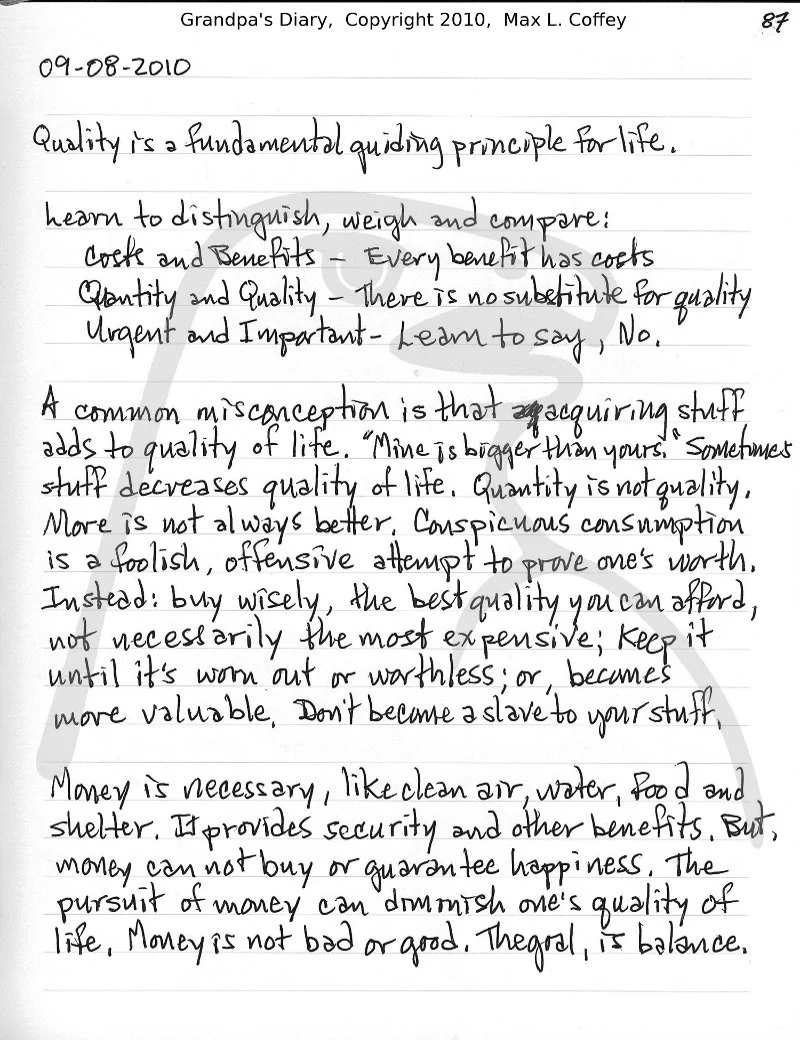 Grandpa's Diary, Copyright 2010, Max L. Coffey
87
09-08-2010
Quality is a fundamental guiding principle for life.
Learn to distinguish, weigh and compare:
Costs and Benefits – Every benefit has costs
Quantity and Quality – There is no substitute for quality
Urgent and Important – Learn to say, No.
A common misconception is that acquiring stuff
adds to quality of life. "Mine is bigger than yours." Sometimes
stuff decreases quality of life. Quantity is not quality.
More is not always better. Conspicuous consumption
is a foolish, offensive attempt to prove one's worth.
Instead: buy wisely, the best quality you can afford,
not necessarily the most expensive; Keep it
until it's worn out or worthless; or, becomes
more valuable. Don't become a slave to your stuff.
Money is necessary, like clean air, water, food and
shelter. It provides security and other benefits. But,
money can not buy or guarantee happiness. The
pursuit of money can diminish one's quality of
life. Money is not bad or good. The goal, is balance.